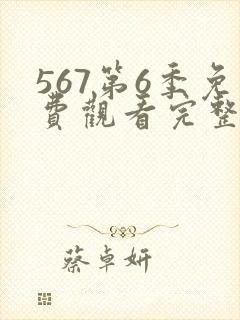 567第6季免
費觀看完整
蔡卓妍